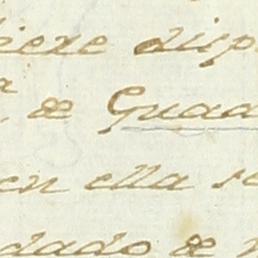 iere disp
a, de Guad
en ella se
dado de